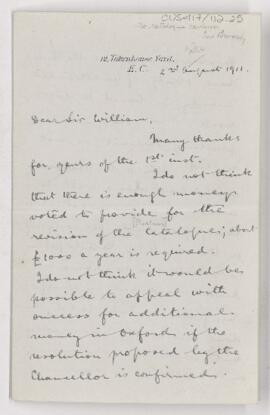 CUS-1/7/112-25
10, Tokenhouse Yard,
E.C. 2nd August 1911.
Dear Sir William,
Many thanks
for yours of the 1st inst.
I do not think
that there is enough money
voted to provide for the
revision of the Catalogue; about
£1000 a year is required.
I do not think it would be
possible to appeal with
success for additional
money in Oxford if the
resolution proposed by the
Chancellor is confirmed.